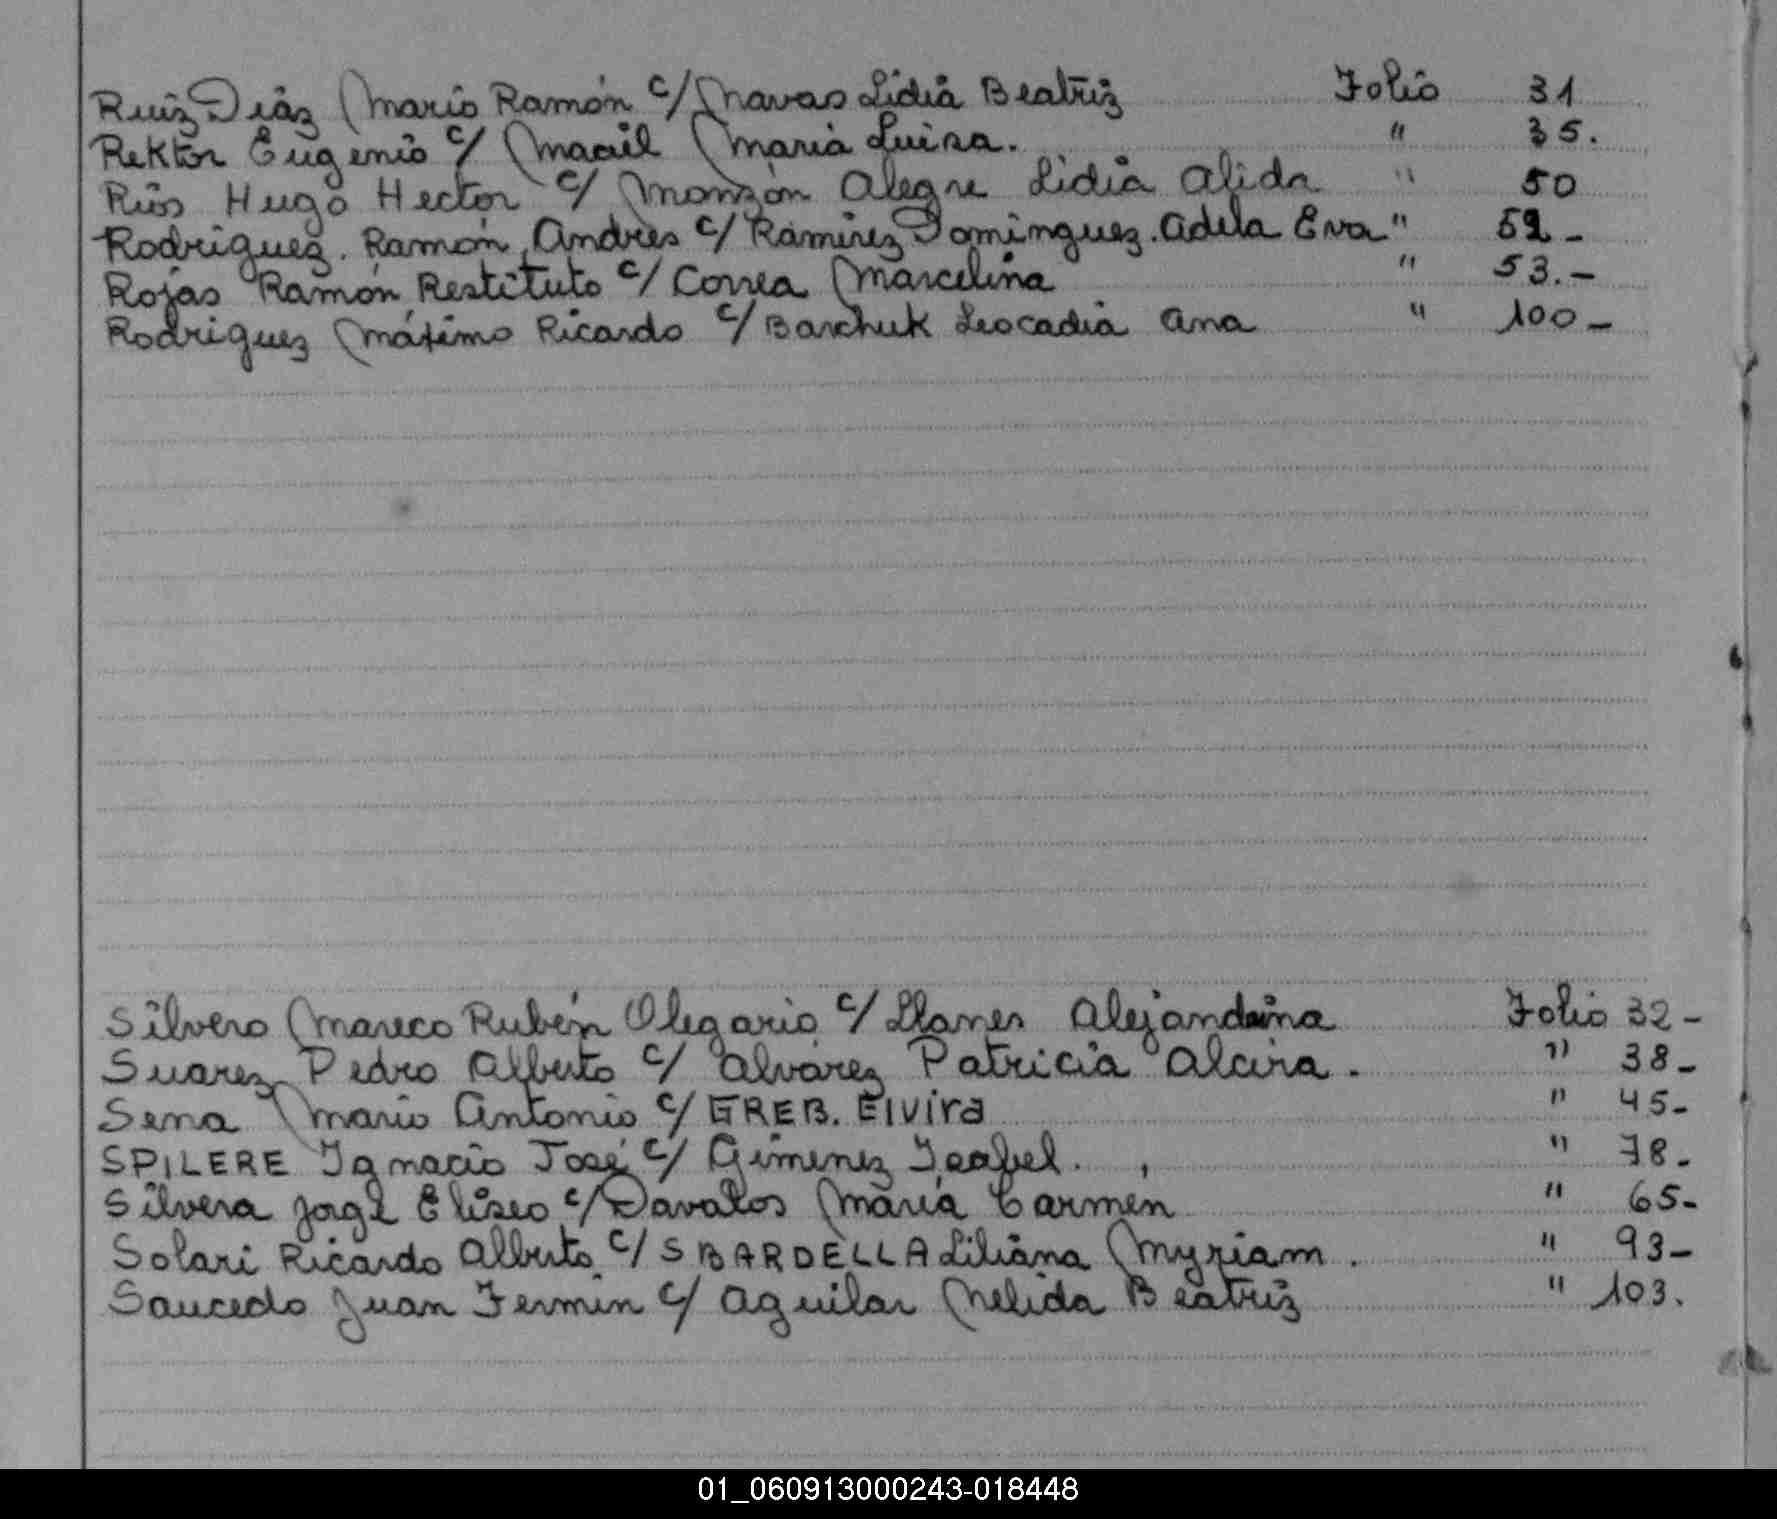 Ruiz Diaz Mario Ramón c/ Navas Lidia Beatriz Folio 31
Rektor Eugenio c/ Maciel Maria Luisa. " 35.
Rios Hugo Hector c/ Monzón Alegre Lidia Alida " 50
Rodriguez. Ramón Andres c/ Ramirez Dominguez. Adela Eva " 52-
Rojas Ramón Restituto c/ Correa Marcelina " 53.-
Rodriguez Máximo Ricardo c/ Barchuk Leocadia Ana " 100-
Silvero Mareco Rubén Olegario c/ Llanes Alejandrina Folio 32-
Suarez Pedro Alberto c/ Alvarez Patricia Alcira. " 38-
Sena Mario Antonio c/ GREB. Elvira " 45-
SPILERE Ignacio José c/ Gimenez Isabel. " 78.
Silvera Jorge Eliseo c/ Davalos María Carmen " 65-
Solari Ricardo Alberto c/ SBARDELLA Liliana Myriam. " 93-
Saucedo Juan Fermin c/ Aguilar Nelida Beatriz " 103.
01_060913000243-018448